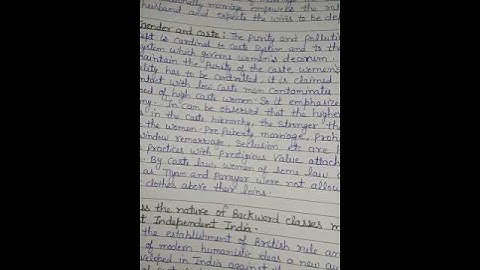 marriage empowers the
husband and expects the wives to be
Gender and caste : The purity and
is cardinal to caste system and to th
system which governs women's decorum.
maintain the purity of the caste, women's
has to be controlled, it is claimed
with low caste men contaminates
of high caste women So it emphasize
In can be observed that the higher
in the caste hierarchy, the stronger th
the women. Pre puberty marriage, proh
window remarriage, seclusion etc are
practices with value attach
By caste law, women of some low
as and Parayar were not allow
clothes above their loins.
ss the nature of Backward classes m
Independent India.
the establishment of British rule an
of modern humanistic ideas a new
veloped in India against